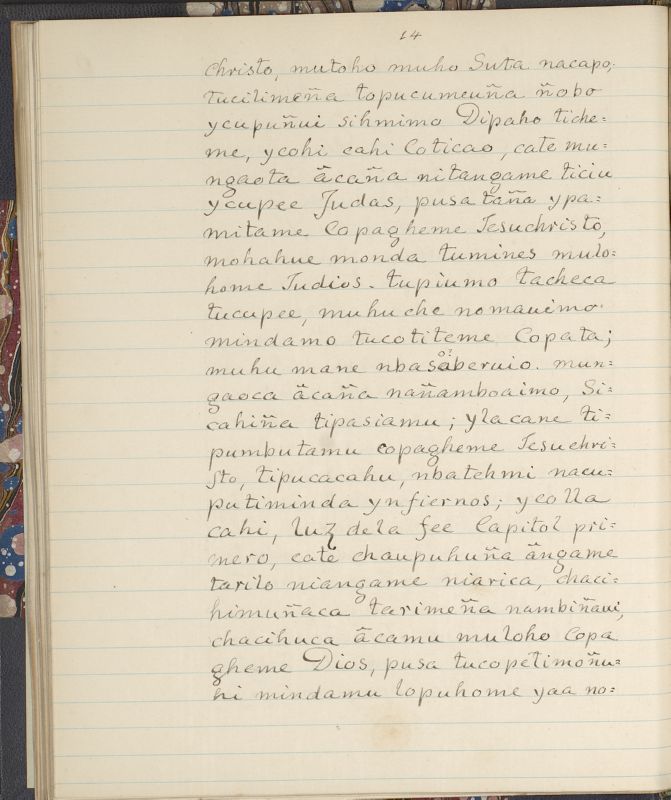 14
Christo, mutoho muho Suta nacapo;
tucilimeña topucumeuña ñobo
ycupuñui sihmimo Dipaho tiche=
me, ycohi cahi Coticao, cate mu=
ngaota ãcaña nitangame ticiu
ycupee Judas, pusa taña ypa=
mitame Copagheme Jesuchristo,
mohahue monda tumines mulo=
home Judios. tupiumo tacheca
tucupee, muhu che nomauimo
mindamo tucotiteme Copata;
o?
muhu mane nbasaberuio. mun=
gaoca ãcaña nañamboaimo, Si=
cahiña tipasiamu; ylacane ti=
pumbutamu copagheme Jesuchri=
sto, tipucacahu, nbatehmi nacu=
putiminda ynfiernos; ycolla
cahi, luz dela fee Capitol pri=
mero, cate chaupuhuña ãngame
tarilo niangame niarica, chaci=
himuñaca tarimeña nambiñaui,
chacihuca ãcamu muloho Copa
gheme Dios, pusa tucopetimoñu=
hi mindamu lopuhome yaa no=